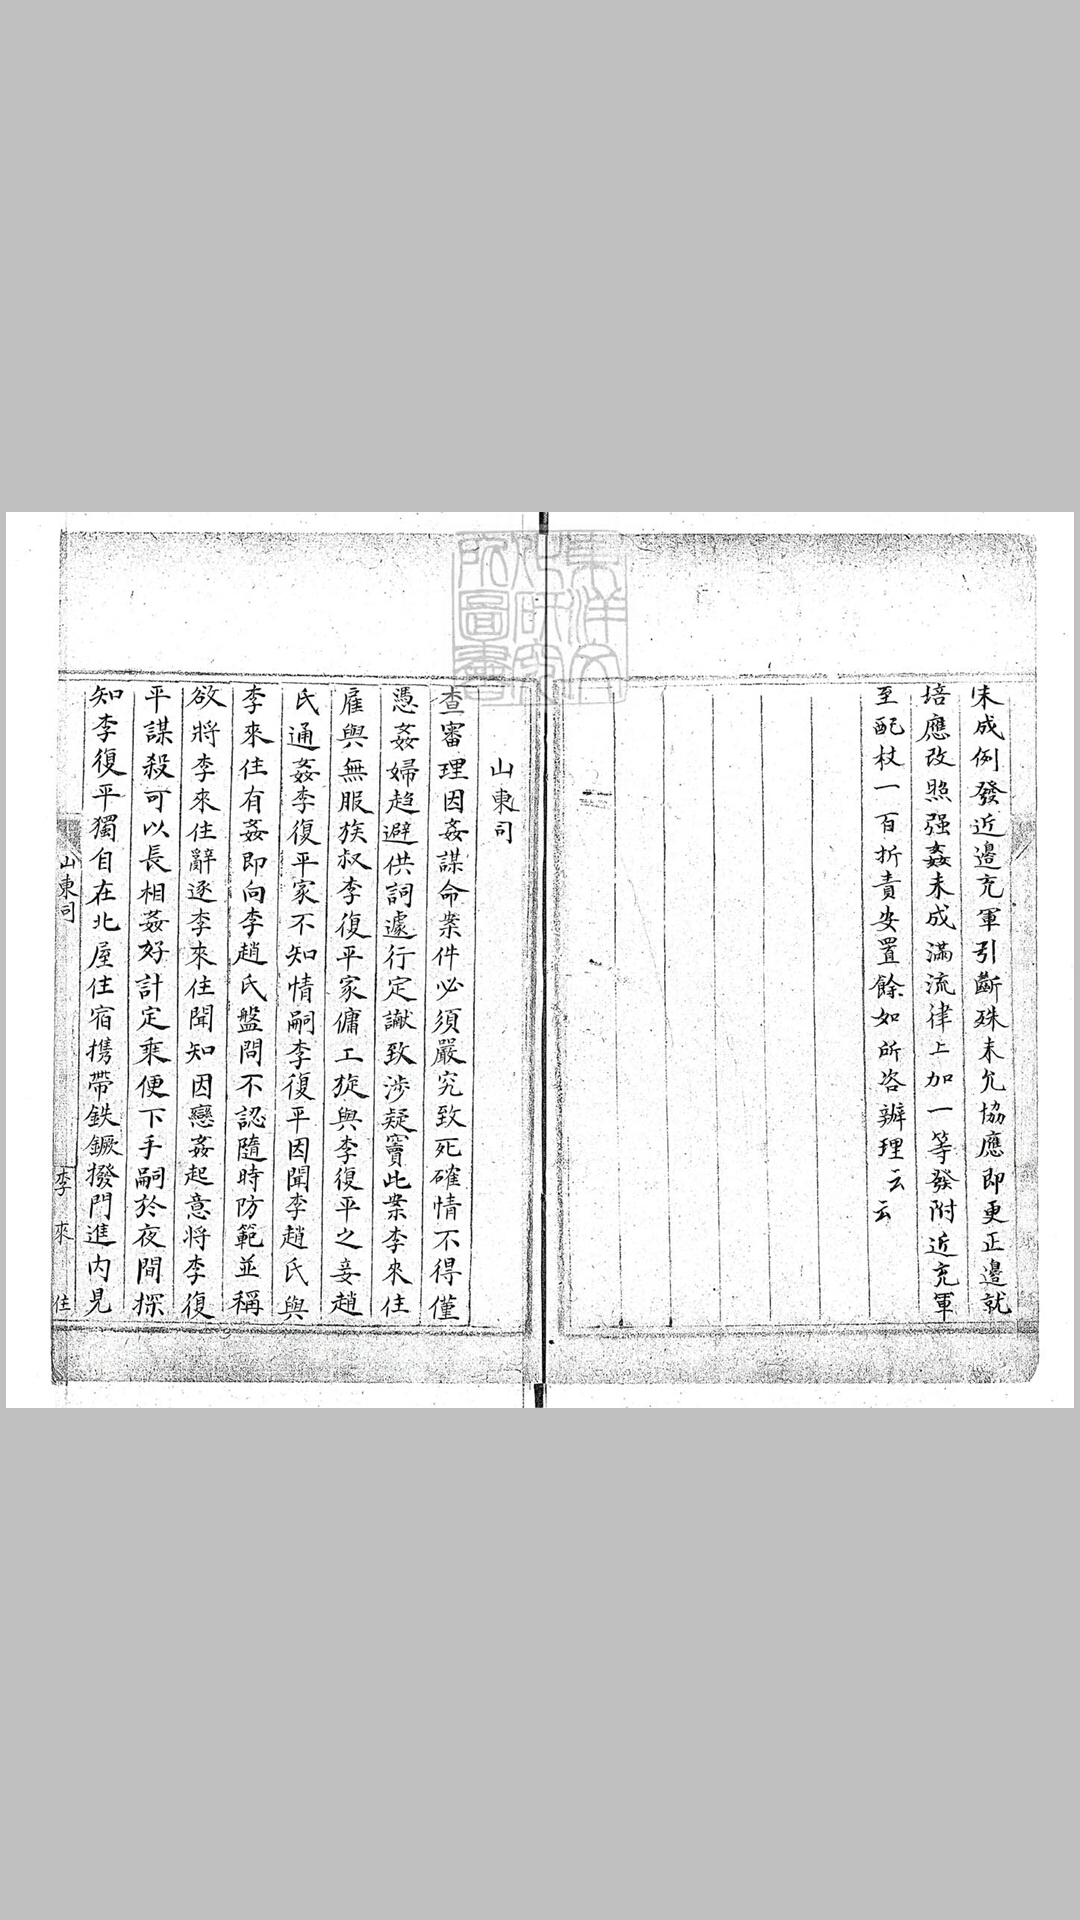 未成例發近邊充軍引斷殊未允協應即更正邊就
培應改照强姦未成滿流律上加一等發附近充軍
至配杖一百折責安置餘如所咨辦理云云
山東司
查審理因姦謀命案件必須嚴究致死確情不得僅
憑姦婦趋避供詞遽行定讞致涉疑竇此案李來住
雇與無服族叔李復平家傭工旋與李復平之妾趙
氏通姦李復平家不知情嗣李復平因聞李趙氏與
李來住有姦即向李趙氏盤問不認隨時防範並稱
欲將李來住辭逐李來住聞知因戀姦起意將李復
平謀殺可以長相姦好計定乘便下手嗣於夜間探
知李復平獨自在北屋住宿携帶鉄鐝撥門進内見
山東司
李來住
東洋文
化研究
所圖書